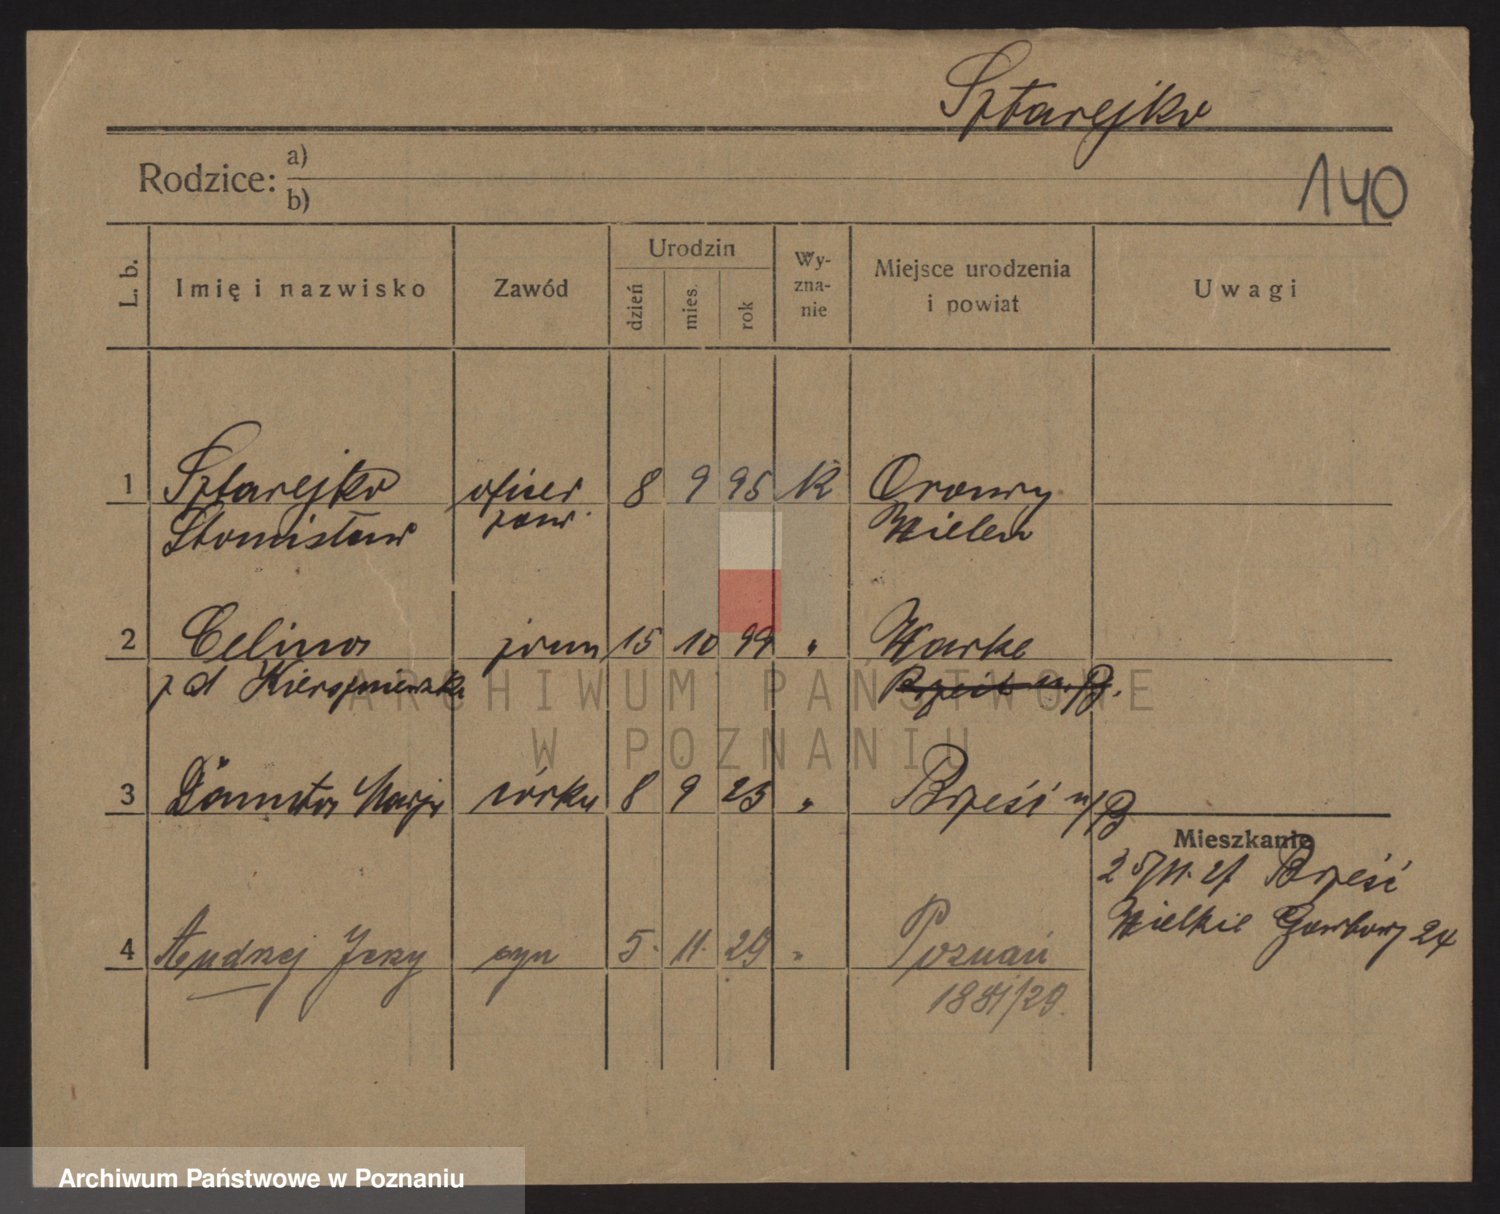 Sztarejko
140
Rodzice: a)
b)
L. b. Imię i nazwisko Zawód Urodzin dzień mies. rok Wy-zna-nie Miejsce urodzenia i powiat Uwagi
1 Sztarejko oficer 8 9 95 K
Stanisław zaw. Wilen
2 Celina żona 15 10 99 " Warka
z d. Brześć n/B.
3 Danuta Marja córka 8 9 25 " Brześć n/B
Mieszkanie
Brześć
Wielkie Garbary 24
4 Andrzej Jerzy syn 5. 11. 29 " Poznań
1881/29.
ARCHIWUM PAŃSTWOWE
W POZNANIU
Archiwum Państwowe w Poznaniu